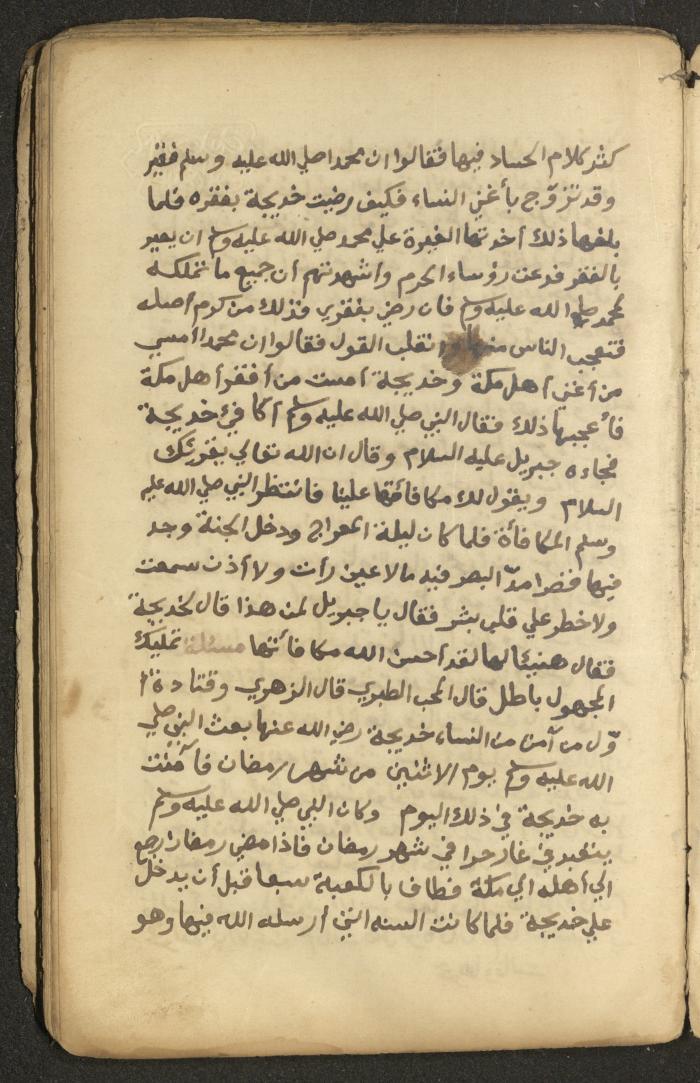 كثر كلام الحساد فيها فقالوا ان محمدا صلي الله عليه وسلم فقير
وقد تزوّج بأغني النساء فكيف رضيت خديجة بفقره فلما
بلغها ذلك أخذتها الغيرة علي محمد صلي الله عليه وسلم ان يعير
بالفقر فدعت رؤساء الحرم وأشهدتهم أن جميع ما تملكه
لمحمد صلي الله عليه وسلم فان رضي بفقري فذلك من كرم أصله
فتعجب الناس منها وانقلب القول فقالوا ان محمدا أمسي
من أغني أهل مكة وخديجة أمست من أفقر أهل مكة
فأعجبها ذلك فقال النبي صلي الله عليه وسلم أكافئ خديجة
فجاءه جبريل عليه السلام وقال ان الله تعالي يقرئك
السلام ويقول لك مكافأتها علينا فانتظر النبي صلي الله عليه
وسلم المكافأة فلما كان ليلة المعراج ودخل الجنة وجد
فيها قصرا مدّ البصر فيه مالا عين رأت ولا أذن سمعت
ولا خطر علي قلب بشر فقال يا جبريل لمن هذا قال لخديجة
فقال هنيئا لها لقد أحسن الله مكافأتها مسئلة تمليك
المجهول باطل قال المحب الطبري قال الزهري وقتادة أ
وّل من آمن من النساء خديجة رضي الله عنها بعث النبي صلي
الله عليه وسلم يوم الاثنين من شهر رمضان فآمنت
به خديجة في ذلك اليوم وكان النبي صلي الله عليه وسلم
يتعبد في غار حرا في شهر رمضان فاذا مضي رمضان رجع
الي أهله الي مكة فطاف بالكعبة سبعا قبل أن يدخل
علي خديجة فلما كانت السنه التي أرسله الله فيها وهو